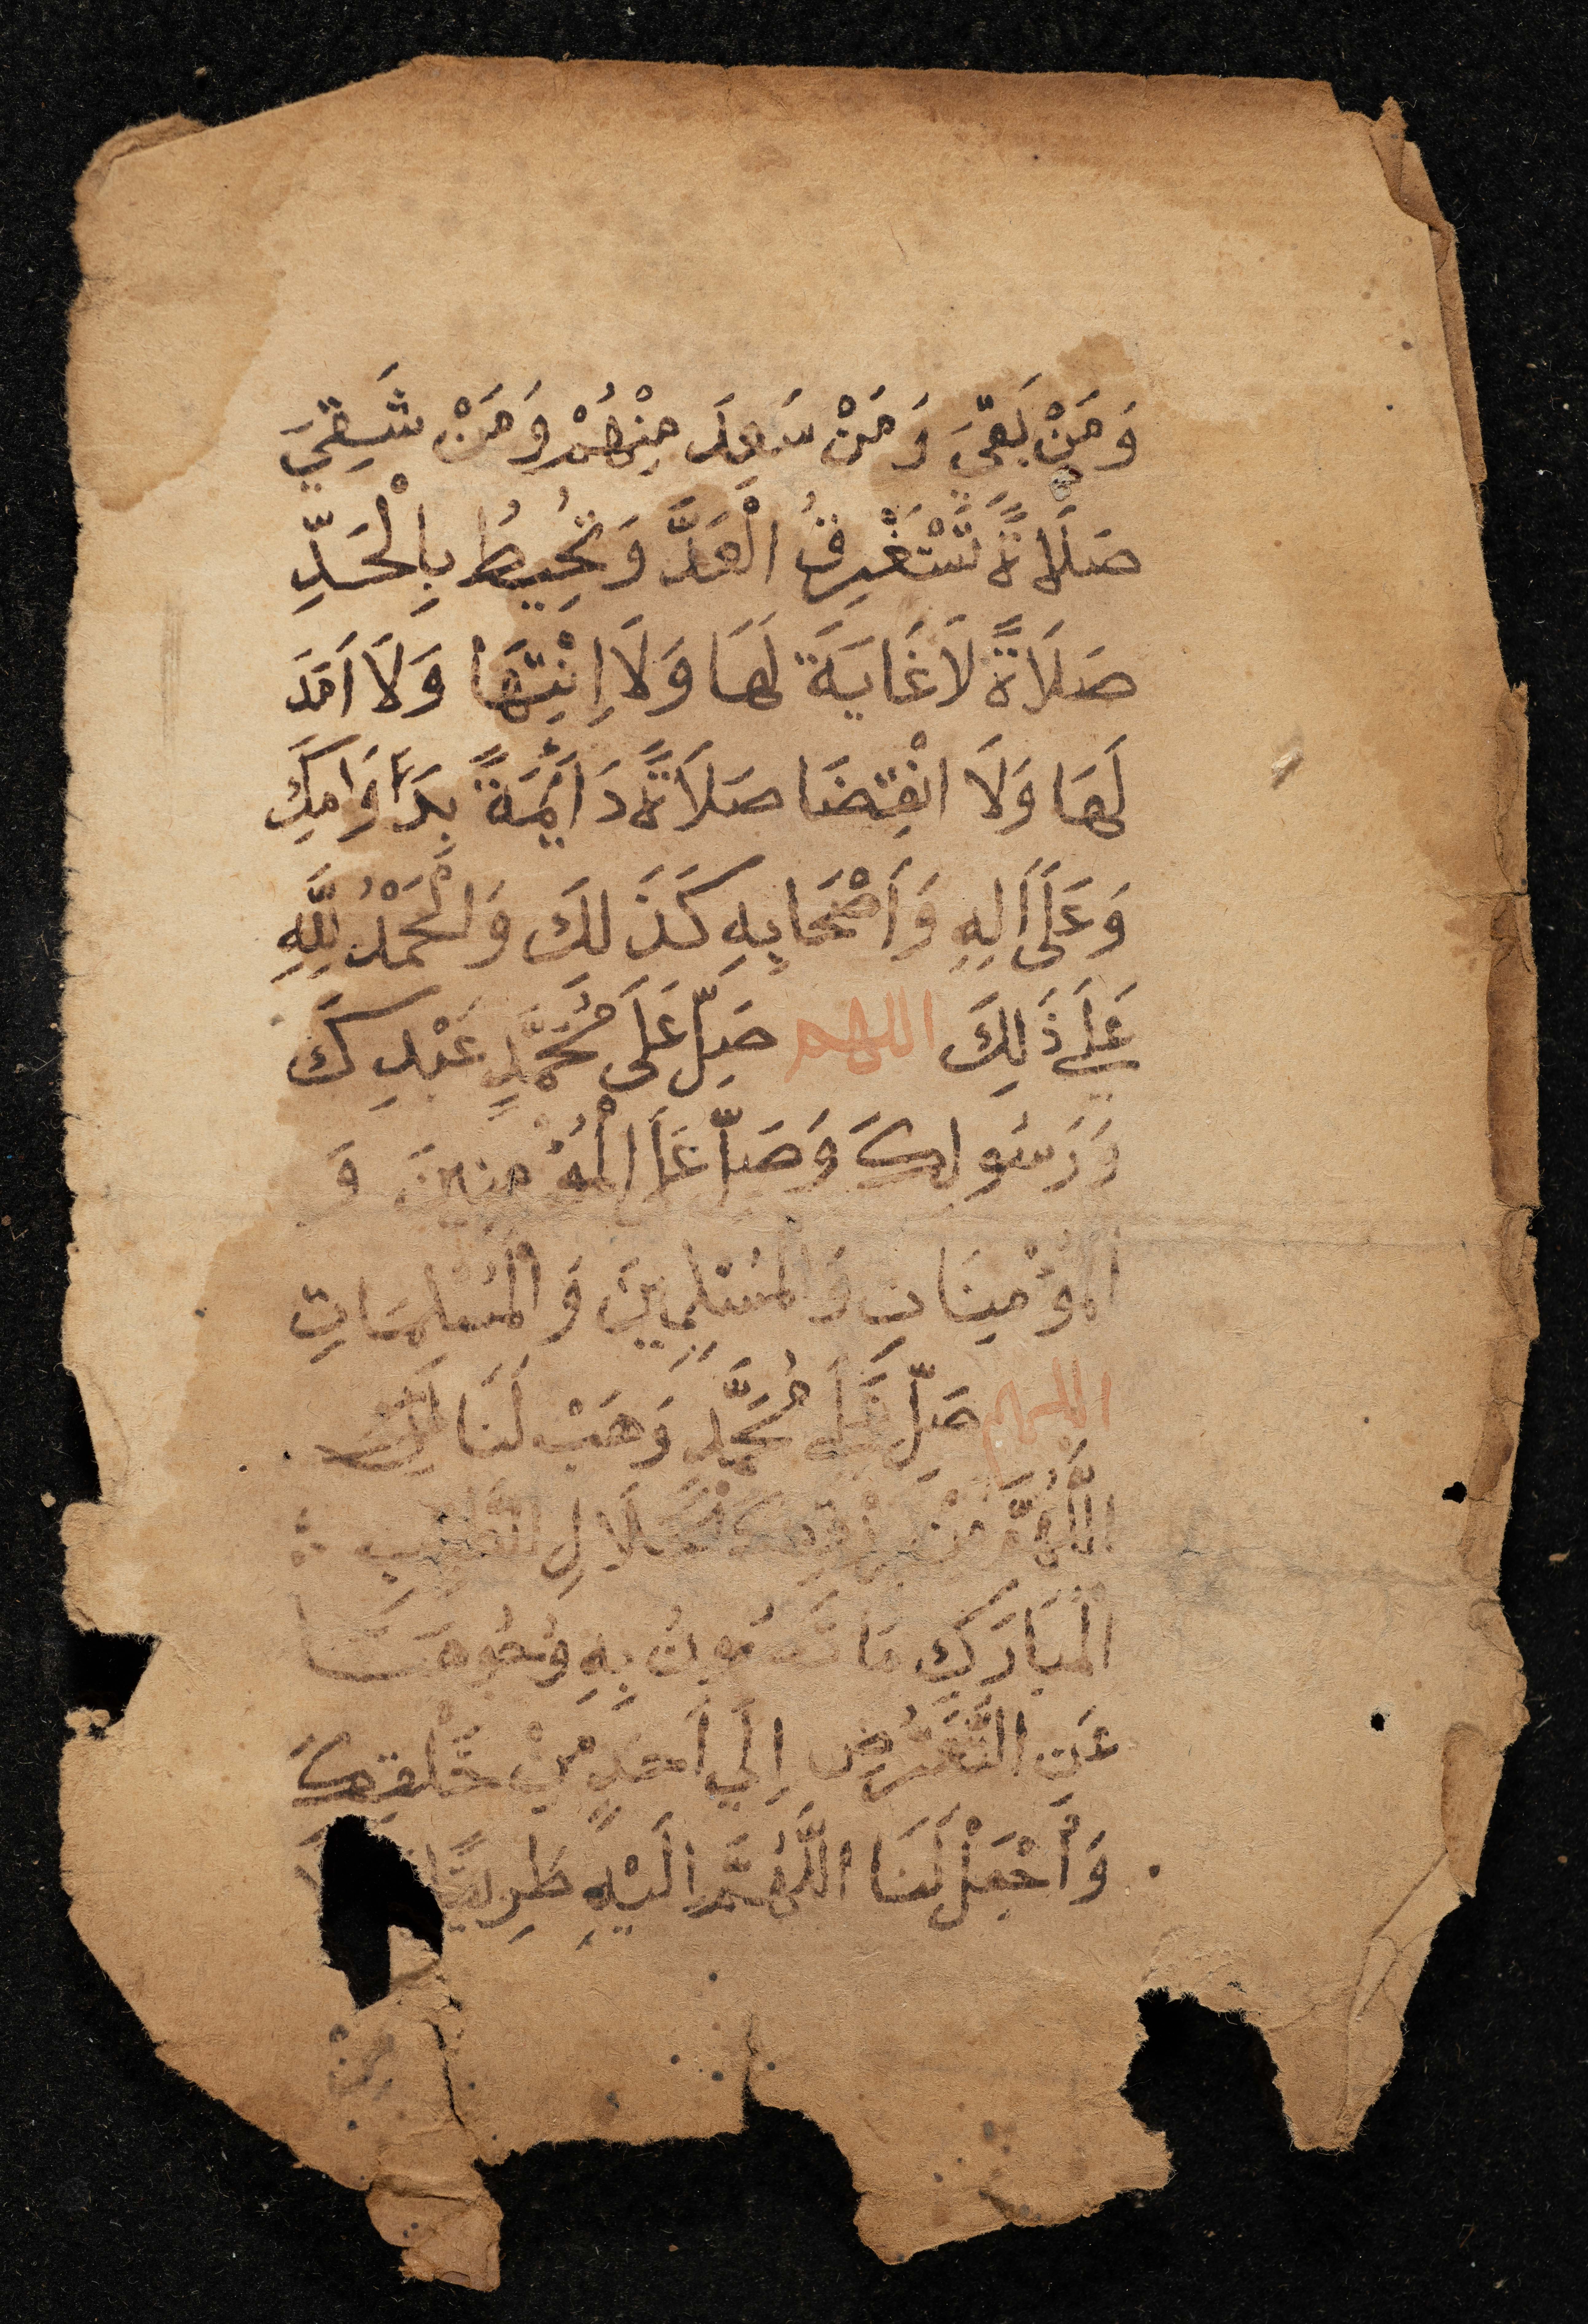 وَمَنْ بَقِيَ وَمَنْ سَعِدَ مِنْهُمْ وَمَنْ شَقِيَ
صَلَاةً تَسْتَغْرِقُ الْعَدَّ وَتُحِيطُ بِالْحَدِّ
صَلَاةً لَا غَايَةَ لَهَا وَلَا اِنْتِهَا وَلَا اَمَدَ
لَهَا وَلَا انْقِضَا صَلَاةً دَائِمَةً بِدَوَامِكَ
وَعَلَى اَلِهِ وَاَصْحَابِهِ كَذَلِكَ وَالْحَمْدُ لِلَّهِ
عَلَي ذَلِكَ اللهم صَلِّ عَلَى مُحَمَّدٍ عَبْدِكَ
وَرَسُولِكَ وَصَلِّ عَلَى الْمُؤْمِنِينَ وَ
الْمُؤْمِنَاتِ وَالْمُسْلِمِينَ وَالْمُسْلِمَاتِ
اللهم صَلِّ عَلَي مُحَمَّدٍ وَهَبْ لَنَا
اللَّهُمَّ مِنْ رِزْقِكَ الْحَلَالِ الطَّيِّبِ
الْمُبَارَكِ مَا تَصُونُ بِهِ وُجُوهَنَا
عَنِ التَّعَرُّضِ اِلَي اَحَدٍ مِنْ خَلْقِكَ
وَاجْعَلْ لَنَا اللَّهُمَّ اِلَيْهِ طَرِيقًا
مِنْ